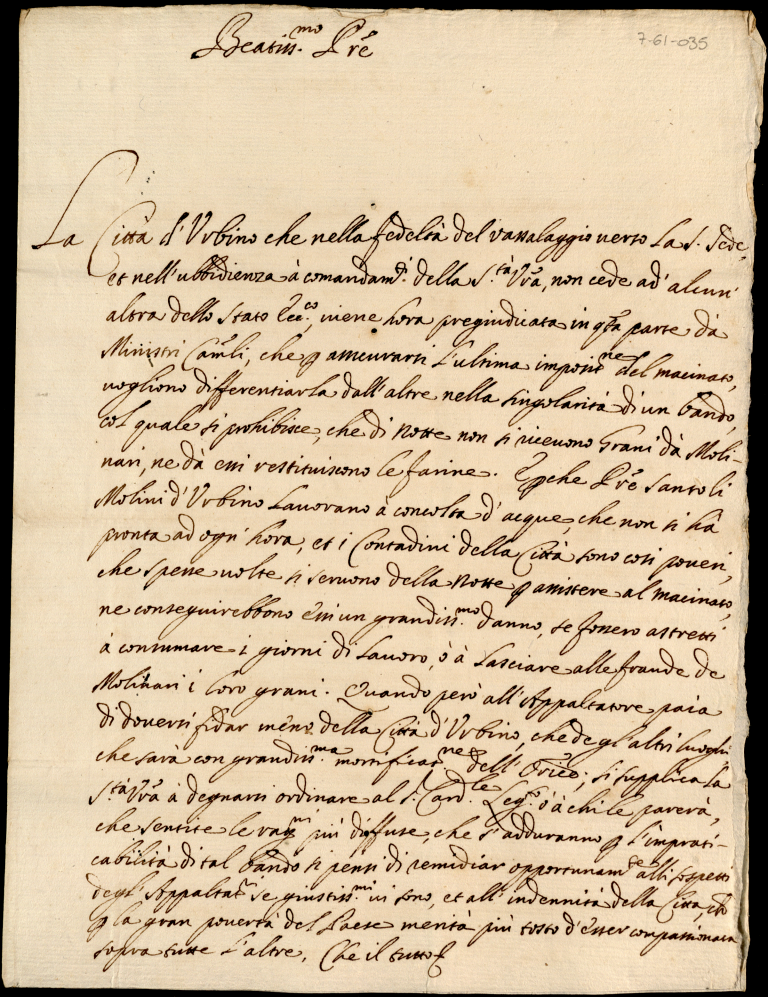 7-61-035
Beatiss.mo Pre
La Città d'Urbino che nella fedeltà del vassalaggio uerso La S. Sede,
et nell'ubbidienza à comandam.ti della S.tà Vra, non cede ad' alcun'
altra dello Stato Ecc.co, uiene hora pregiudicata in qta parte dà
Ministri Camli, che p assicurarsi L'ultima imposit.ne del macinato,
uogliono differentiarla dall'altre nella singolarità di un bando,
col quale si prohibisce, che di Notte non si riceuono Grani dà Moli-
nari, ne dà essi restituiscono le farine. E pche Pre Santo li
Molini d'Urbino Lauorano à concolta d'acque, che non si hà
pronta ad ogn' hora, et i Contadini della Città sono così poueri,
che spesse uolte si seruono della Notte p assistere al macinato,
ne conseguirebbono essi un grandiss.mo danno, se fossero astretti
à consumare i giorni di Lauoro, ò à Lasciare alle fraude de
Molinari i loro grani. Quando però all'Appaltatore paia
di douersi fidar meno della Città d'Urbino, che degl'altri luoghi
che sarà con grandiss.ma mortificat.ne dell' si supplica La
S.tà Vra à degnarsi ordinare al S. Card.le Leg. ò à chi le parerà,
che sentite le rag.ni più diffuse, che s'adduranno p L'imprati-
cabilità di tal bando si pensi di remidiar opportunam.te alli sospetti
degl'Appaltat.ri se giustiss.mi ui sono, et all'indennità della Città ch
p la gran pouertà del Paese merità più tosto d'esser conpassionata
sopra tutte L'altre, Che il tutto